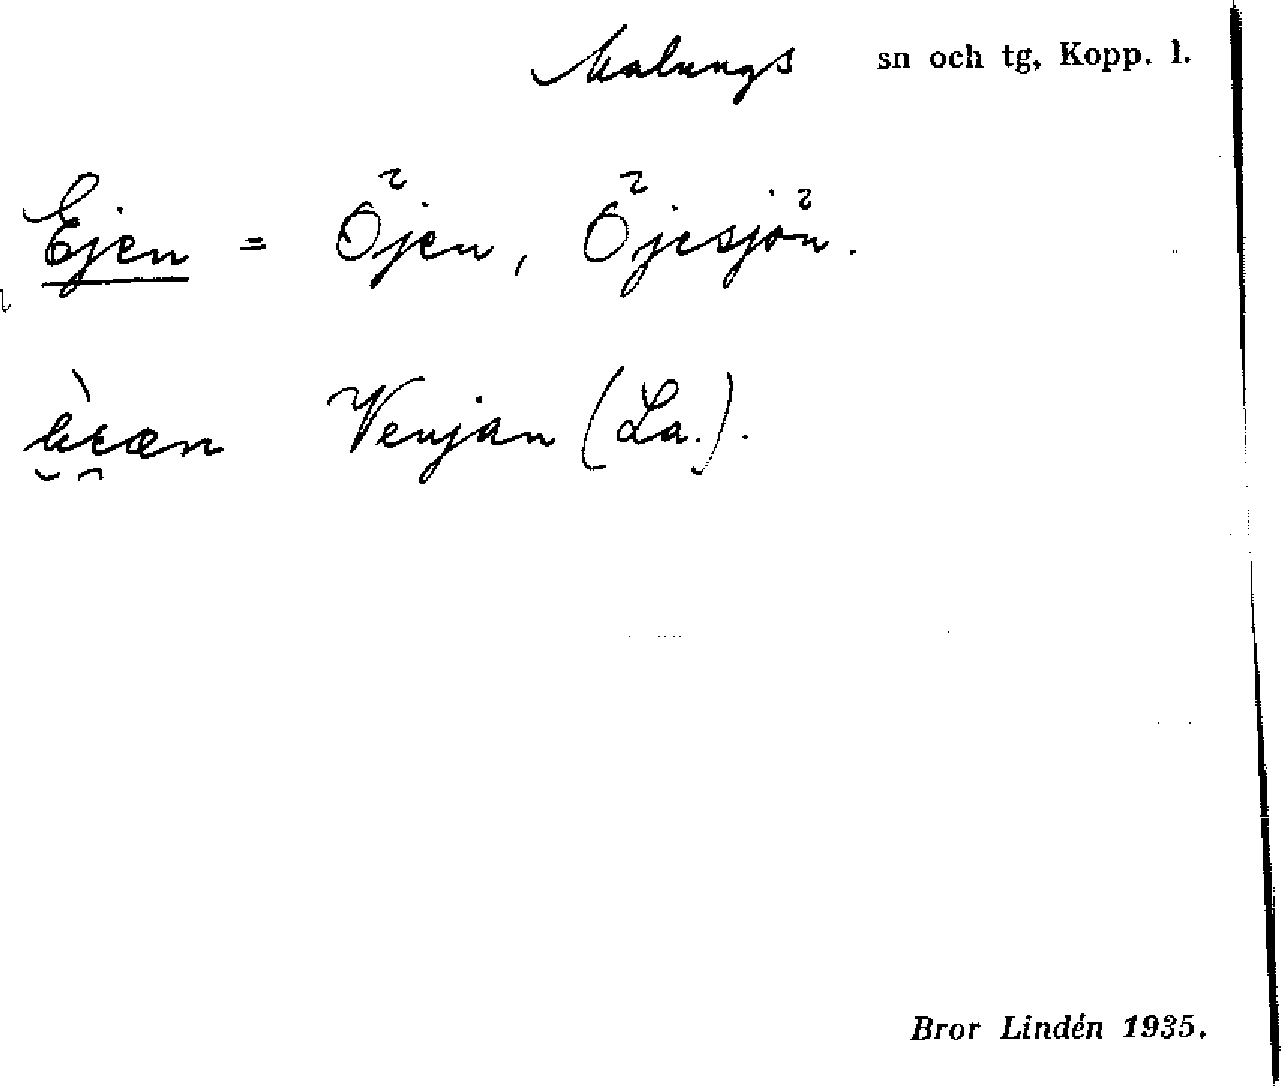 Malungs sn och tg, Kopp. l.
Ejen = Öjen, Öjesjön.
Venjan (La.).
Bror Lindén 1935.